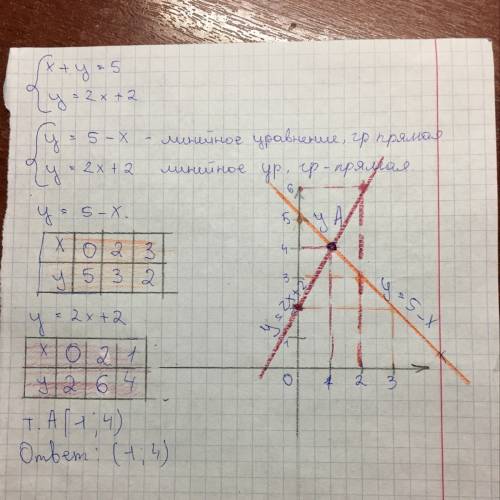 x+y=5
y=2x+2
y = 5-x - линейное уравнение, гр прямая
y = 2x+2 линейное ур, гр-прямая
y = 5-x.
x 0 2 3
y 5 3 2
y = 2x+2
x 0 2 1
y 2 6 4
т. A (1; 4)
Ответ: (1; 4)
6
5
y A
4
3
y=2x+2
y=5-x
1
0 1 2 3